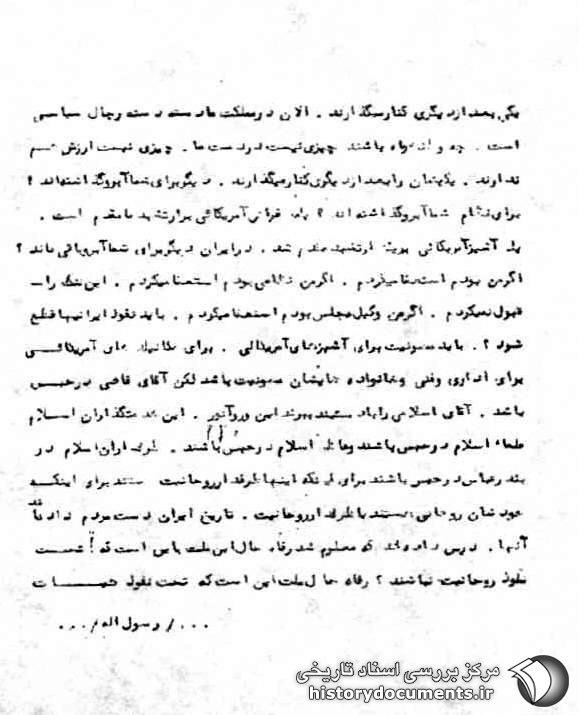 یکی بعد از دیگری کنار میگذارند . الان در مملکت ما دست دسته رجال سیاسی
است . چه و انخواه باشند چیزی نیست در دست ما . چیزی نیست ارزش هم
ندارند . یکایشان را بعد از دیگری کنار میگذارند . دیگر برای شما آبرو گذاشته‌اند ؟
برای نظام شما آبرو گذاشته اند ؟ یک فراش آمریکائی بر ارتشبد ما مقدم است .
یک آشپز آمریکائی بر ارتشبد مقدم شد . در ایران دیگر برای شما آبرو باقی ماند ؟
اگر من بودم استعفا میکردم . اگر من نظامی بودم استعفا میکردم . این ننگ را
قبول نمیکردم . اگر من وکیل مجلس بودم استعفا میکردم . باید نفوذ ایرانیها قطع
شود ؟ . باید مصونیت برای آشپزهای آمریکائی . برای مکانیک های آمریکائی
برای اداری وفنی وخانواده هایشان مصونیت باشد لکن آقای قاضی در حبس
باشد . آقای اسلامی را با دستبند ببرند این ور وآنور . این خدمتگذاران اسلام
علماء اسلام در حبس باشند وعاظ اسلام در حبس باشند . طرفداران اسلام در
بندرعباس در حبس باشند برای اینکه اینها طرفدار روحانیت هستند برای اینکه
خودشان روحانی هستند یا طرفدار روحانیت . تاریخ ایران دست مردم دادند
آنها . درس دادند که معلوم شد رفاه حال این ملت باین است که
نفوذ روحانیت نباشند ؟ رفاه حال ملت این است که تحت نفوذ
... / رسول اله / ...
مرکز بررسی اسناد تاریخی
historydocuments.ir